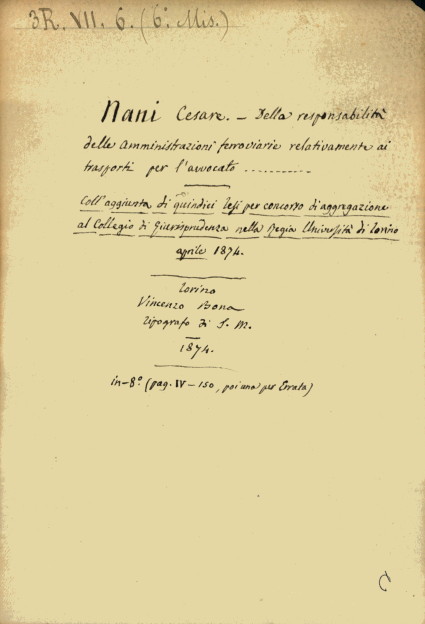 3R. VII. 6. (6°. Mis.)
Nani Cesare. – Della responsabilità
delle Amministrazioni ferroviarie relativamente ai
trasporti per l'avvocato ..........
Coll'aggiunta di quindici Tesi per concorso di aggregazione
al Collegio di Giurisprudenza nella Regia Università di Torino
aprile 1874.
Torino
Vincenzo Bona
Tipografo di S. M.
1874.
in-8° (pag. IV – 150, poi una per Errata)
C